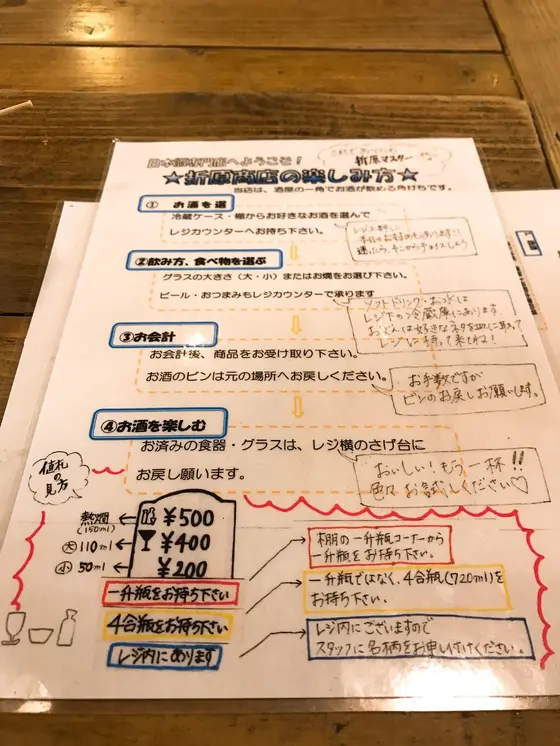 日本酒専門店へようこそ！
これであなたも
折原マスター
★折原商店の楽しみ方★
当店は、酒屋の一角でお酒が飲める角打ちです。
① お酒を選
冷蔵ケース・棚からお好きなお酒を選んで
レジカウンターへお持ち下さい。
迷ったら、そこからチョイスしよう
②飲み方、食べ物を選ぶ
グラスの大きさ（大・小）またはお燗をお選び下さい。
ビール・おつまみもレジカウンターで承ります
ソフトドリンク・おつまみは
レジ下の冷蔵庫にあります。
おでんは好きなネタを皿に取って
レジに持って来てね！
③お会計
お会計後、商品をお受け取り下さい。
お酒のビンは元の場所へお戻しください。
お手数ですが
ビンのお戻しお願いします。
④お酒を楽しむ
お済みの食器・グラスは、レジ横のさげ台に
お戻し願います。
おいしい！もう一杯!!
色々お試しください♡
値札の
見方
熱燗
(150ml)
¥500
大 110ml
¥400
小 50ml
¥200
一升瓶をお持ち下さい
4合瓶をお持ち下さい
レジ内にあります
棚の一升瓶コーナーから
一升瓶をお持ち下さい。
一升瓶ではなく、4合瓶(720ml)を
お持ち下さい。
レジ内にございますので
スタッフに名柄をお申し付けください。